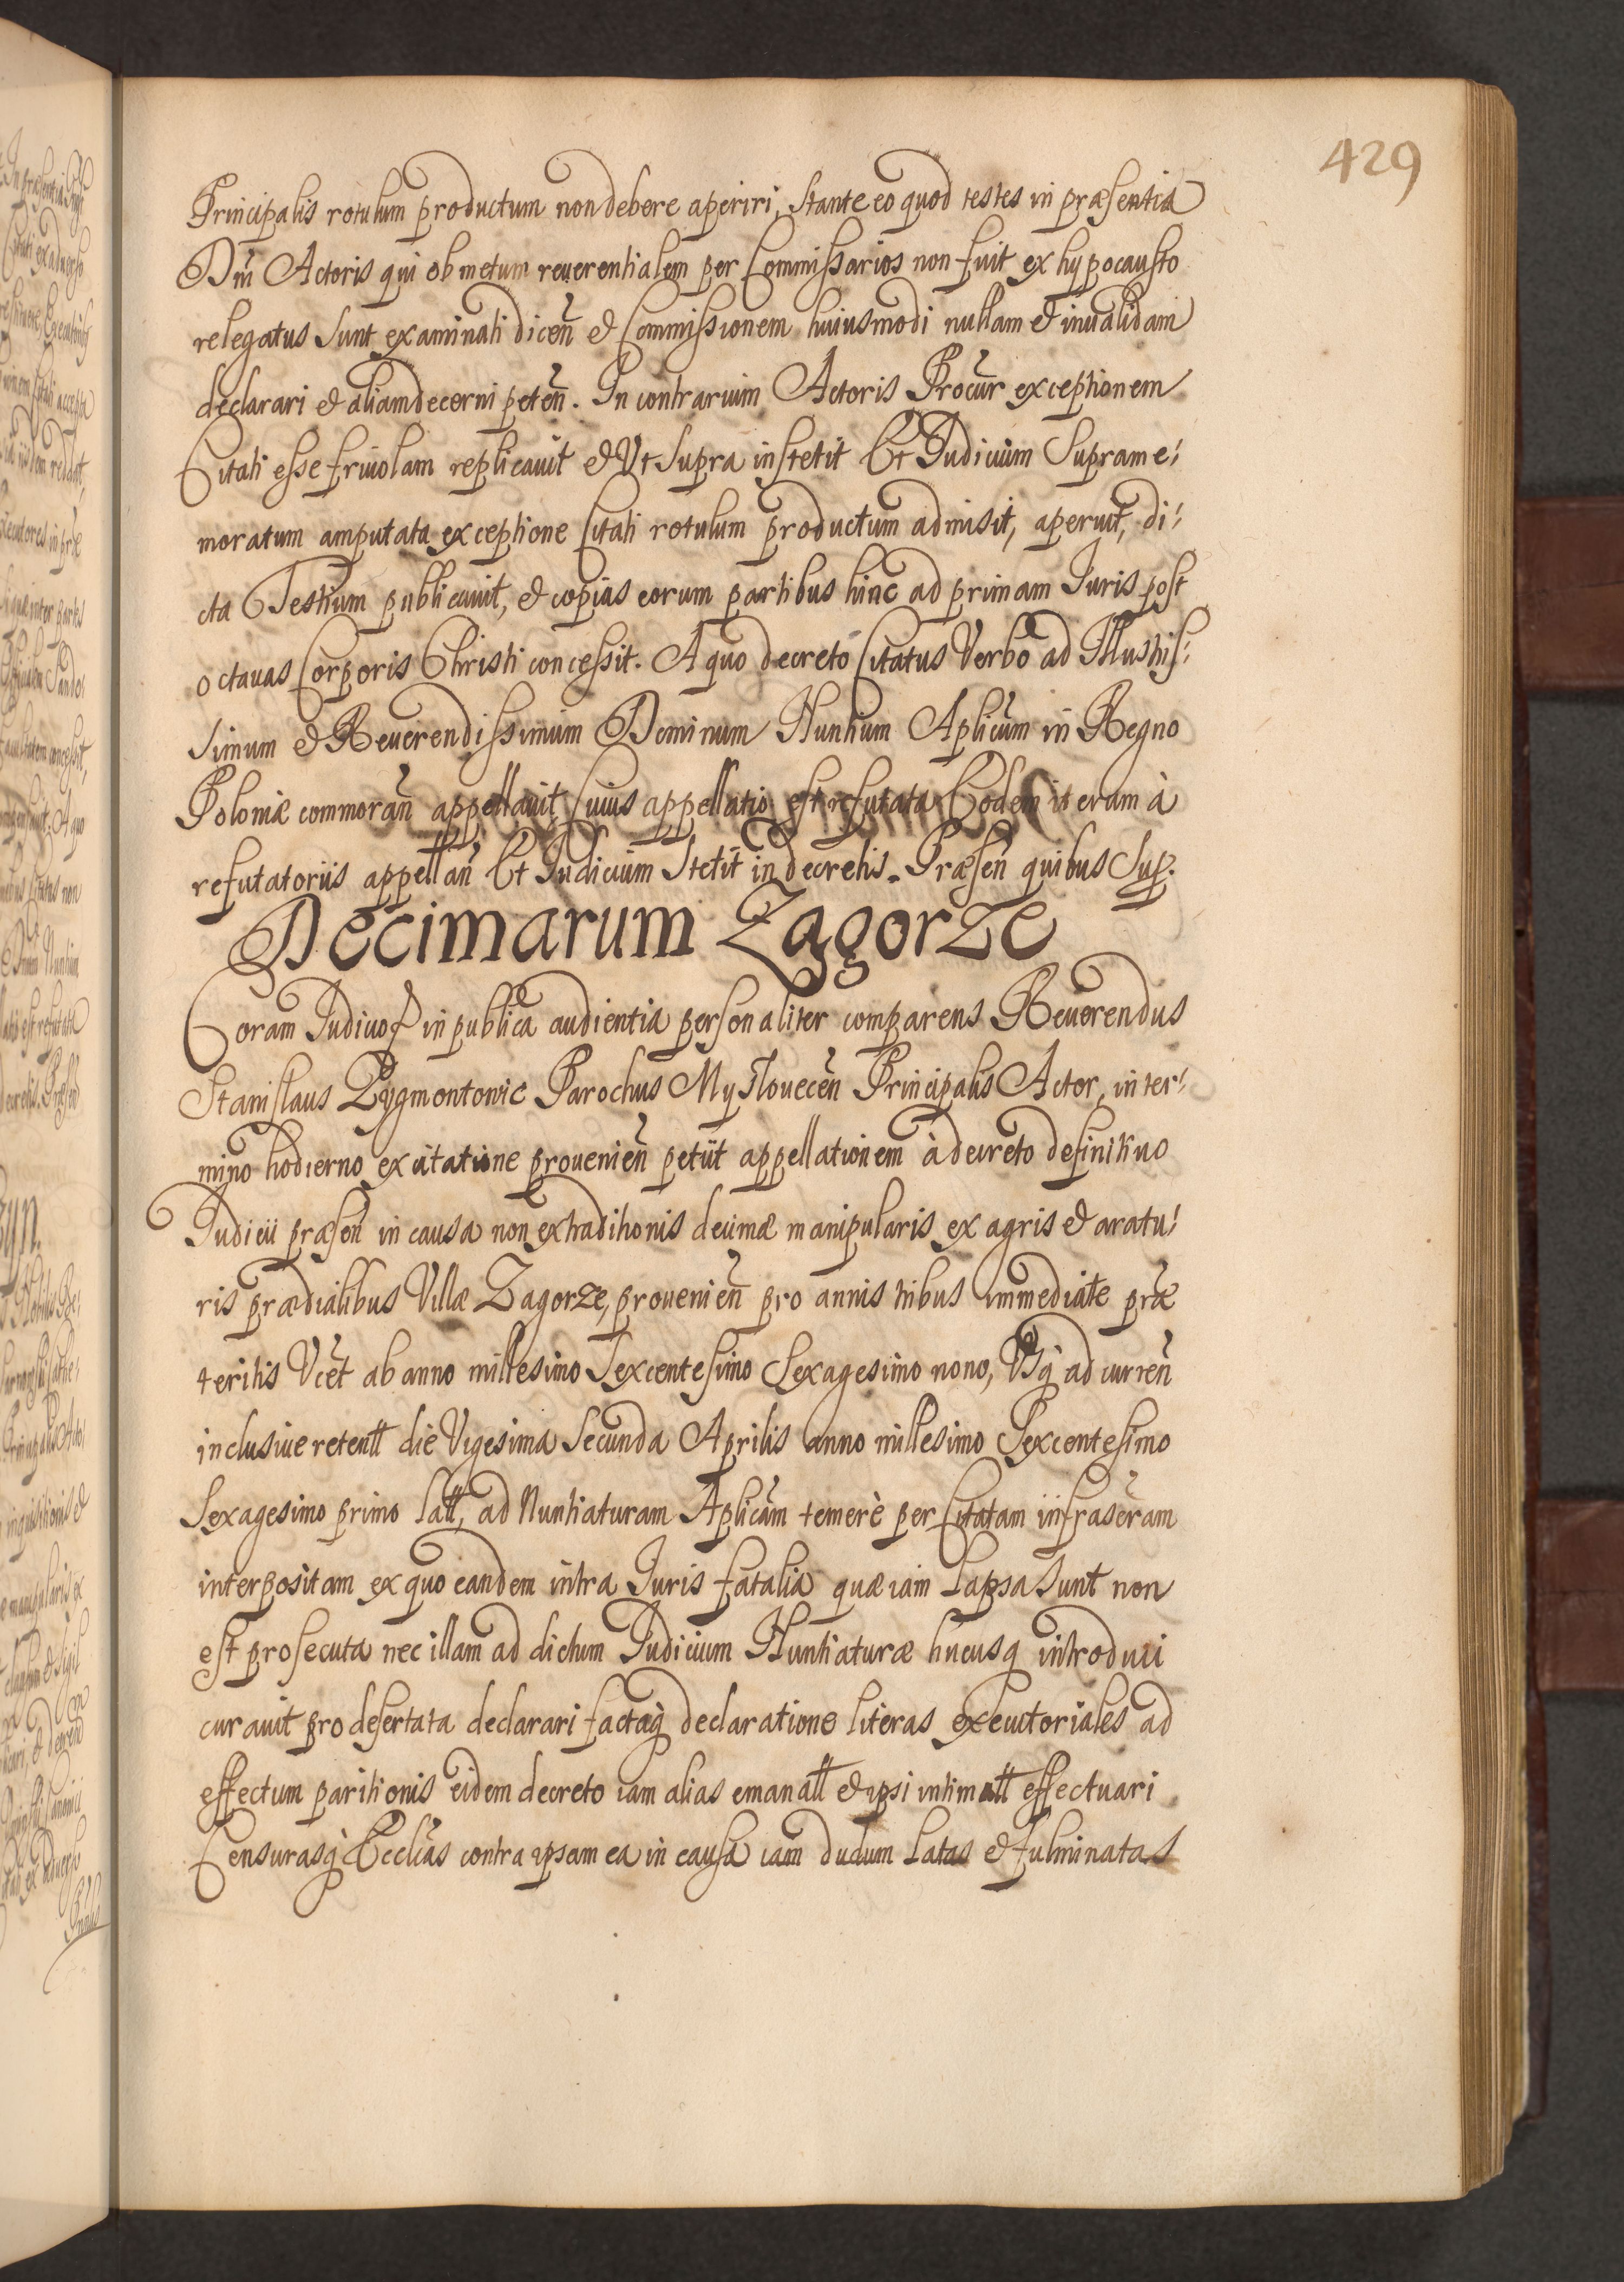 429
Principalis rotulum productum non debere aperiri, Stante eo quod testes in præsentia
Dni Actoris qui ob metum reuerentialem per Commissarios non fuit ex hypocausto
relegatus Sunt examinati dicen̄ et Commissionem huiusmodi nullam et inualidam
declarari et aliam decerni peten̄. In contrarium Actoris Procur exceptionem
Citati esse friuolam replicauit et Vt Supra institit Et Iudicium Suprame:
moratum amputata exceptione Citati rotulum productum admisit, aperuit, di:
cta Testium publicauit, et copias eorum partibus hinc ad primam Iuris post
octauas Corporis Christi concessit. A quo decreto Citatus Verbo ad Illustris:
simum et Reuerendissimum Dominum Nuntium Aplicum in Regno
Poloniæ commoran̄ appellauit, Cuius appellatio est refutata Eodem iterum à
refutatoriis appellan̄ Et Iudicium Stetit in decretis. Præsen̄ quibus Sup.
Decimarum Zagorze
Coram Iudicio in publica audientia personaliter comparens Reuerendus
Stanislaus Zygmontowic Parochus Myslouecen̄ Principalis Actor, in ter:
mino hodierno ex citatione prouenien̄ petiit appellationem à decreto definitiuo
Iudicii præsen̄ in causa non extraditionis decimæ manipularis ex agris et aratu:
ris prædialibus Villæ Zagorze, prouenien̄ pro annis tribus immediate præ
teritis Vcet ab anno millesimo Sexcentesimo Sexagesimo nono, Vsq ad curren̄
inclusiue retentt die Vigesima Secunda Aprilis anno millesimo Sexcentesimo
Sexagesimo primo Latt, ad Nuntiaturam Aplicam temerè per Citatam infrascram
interpositam ex quo eandem intra Iuris fatalia quæ iam Lapsa Sunt non
est prosecuta nec illam ad dictum Iudicium Nuntiaturæ hucusq introduci
curauit pro desertata declarari factaq declaratione literas executoriales ad
effectum paritionis eidem decreto iam alias emanatt et ipsi intimatt effectuari
Censurasq Ecclcas contra ipsam ea in causa iam dudum Latas et fulminatas